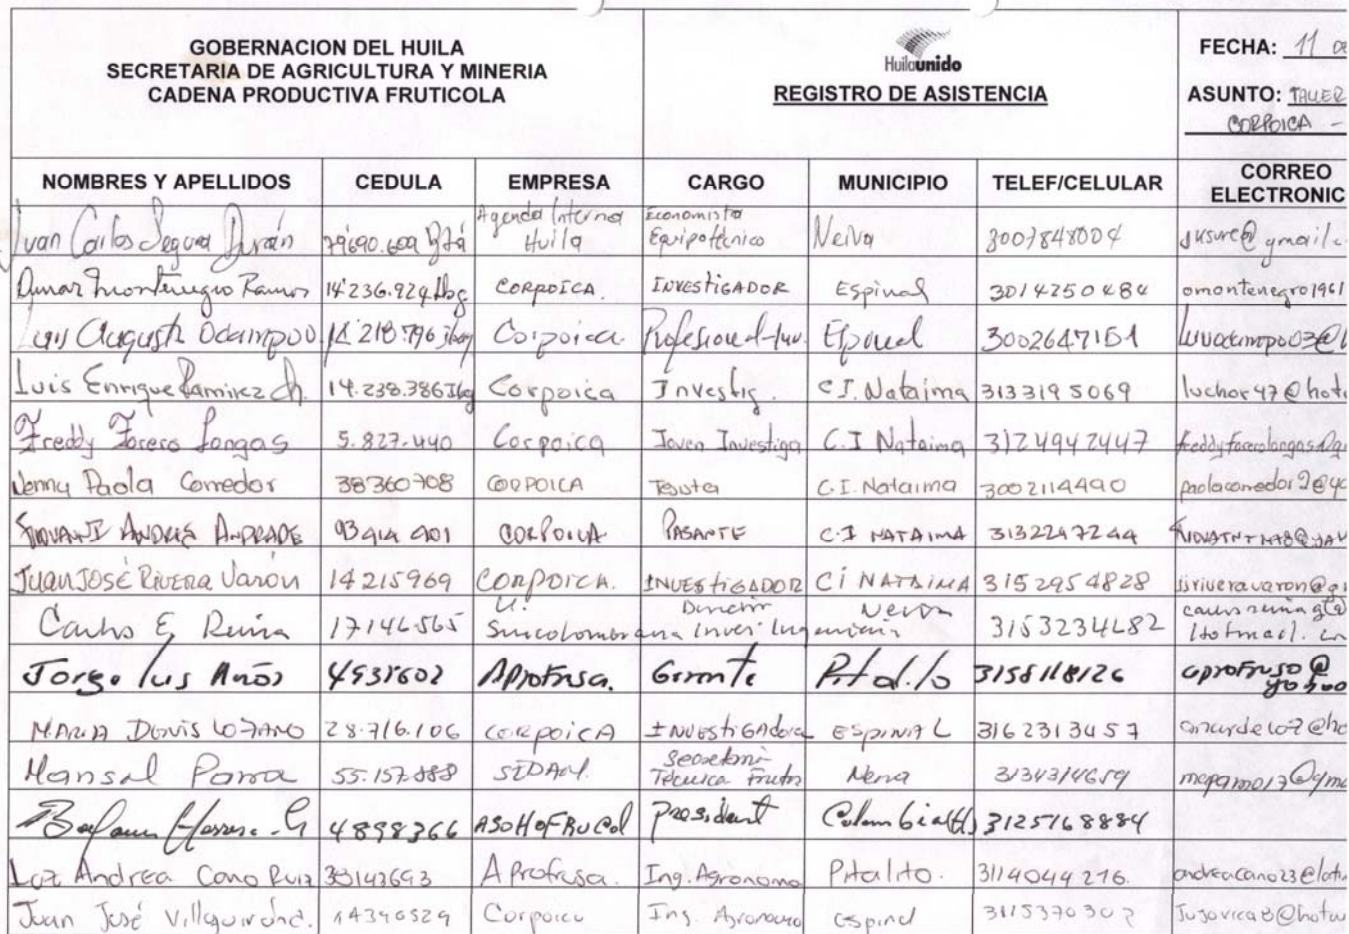 GOBERNACION DEL HUILA
SECRETARIA DE AGRICULTURA Y MINERIA
CADENA PRODUCTIVA FRUTICOLA
Huilaunido
REGISTRO DE ASISTENCIA
FECHA: 11 DE
ASUNTO: TALLER
CORPOICA -
NOMBRES Y APELLIDOS CEDULA EMPRESA CARGO MUNICIPIO TELEF/CELULAR CORREO ELECTRONIC
Juan Carlos Segura Durán 79'690.609 Btá Agenda Interna Huila Economista Equipo técnico Neiva 3007848004 jksure@gmail.
Omar Montenegro Ramos 14'236.924 Ibg CORPOICA. INVESTIGADOR Espinal 3014250484 omontenegro1961
Luis Augusto Ocampo O. 14'218.796 Ibag Corpoica. Profesional-Inv. Espinal 3002647151
Luis Enrique Ramirez Ch. 14.238.386 Ibg Corpoica Investig. C.I. Nataima 3133195069 luchor47@hot
Freddy Forero Longas 5.827.440 Corpoica Joven Investiga C.I Nataima 3124942447 freddyforerolongas@g
Jenny Paola Corredor 38360708 CORPOICA Tesista C.I. Nataima 3002114490 paolacorredor2@y
GIOVANI ANDRES ANDRADE 93 414 401 CORPOICA PASANTE C.I NATAIMA 3132247244
JUAN JOSÉ RIVERA Varón 14215969 CORPOICA. INVESTIGADOR CI NATAIMA 3152954828 jjriveravaron@g
Carlos E. Reina 17146565 U. Surcolombiana Director Inver. Ingenieria Neiva 3153234682 Hotmail.
Jorge luis Muños 4935602 Aprofrusa. Gerente Pitalito 3158118126 aprofruso@ yahoo
MARIA DORIS LOZANO 28.716.106 CORPOICA INVESTIGAdora ESPINAL 3162313457
Marisol Parra 55.157.888 SEDAM. Secretaria Técnica Frutas Neiva 3134314659
4898366 ASOHOFRUCOL President Colombia(H) 3125168884
Luz Andrea Cano Ruiz 38143693 Aprofrusa. Ing. Agronomo Pitalito. 3114044216. andreacano23@
Juan José Villaquirand. 14396529 Corpoica Ing. Agronomo espinal 3115370302 Jujovica8@hot